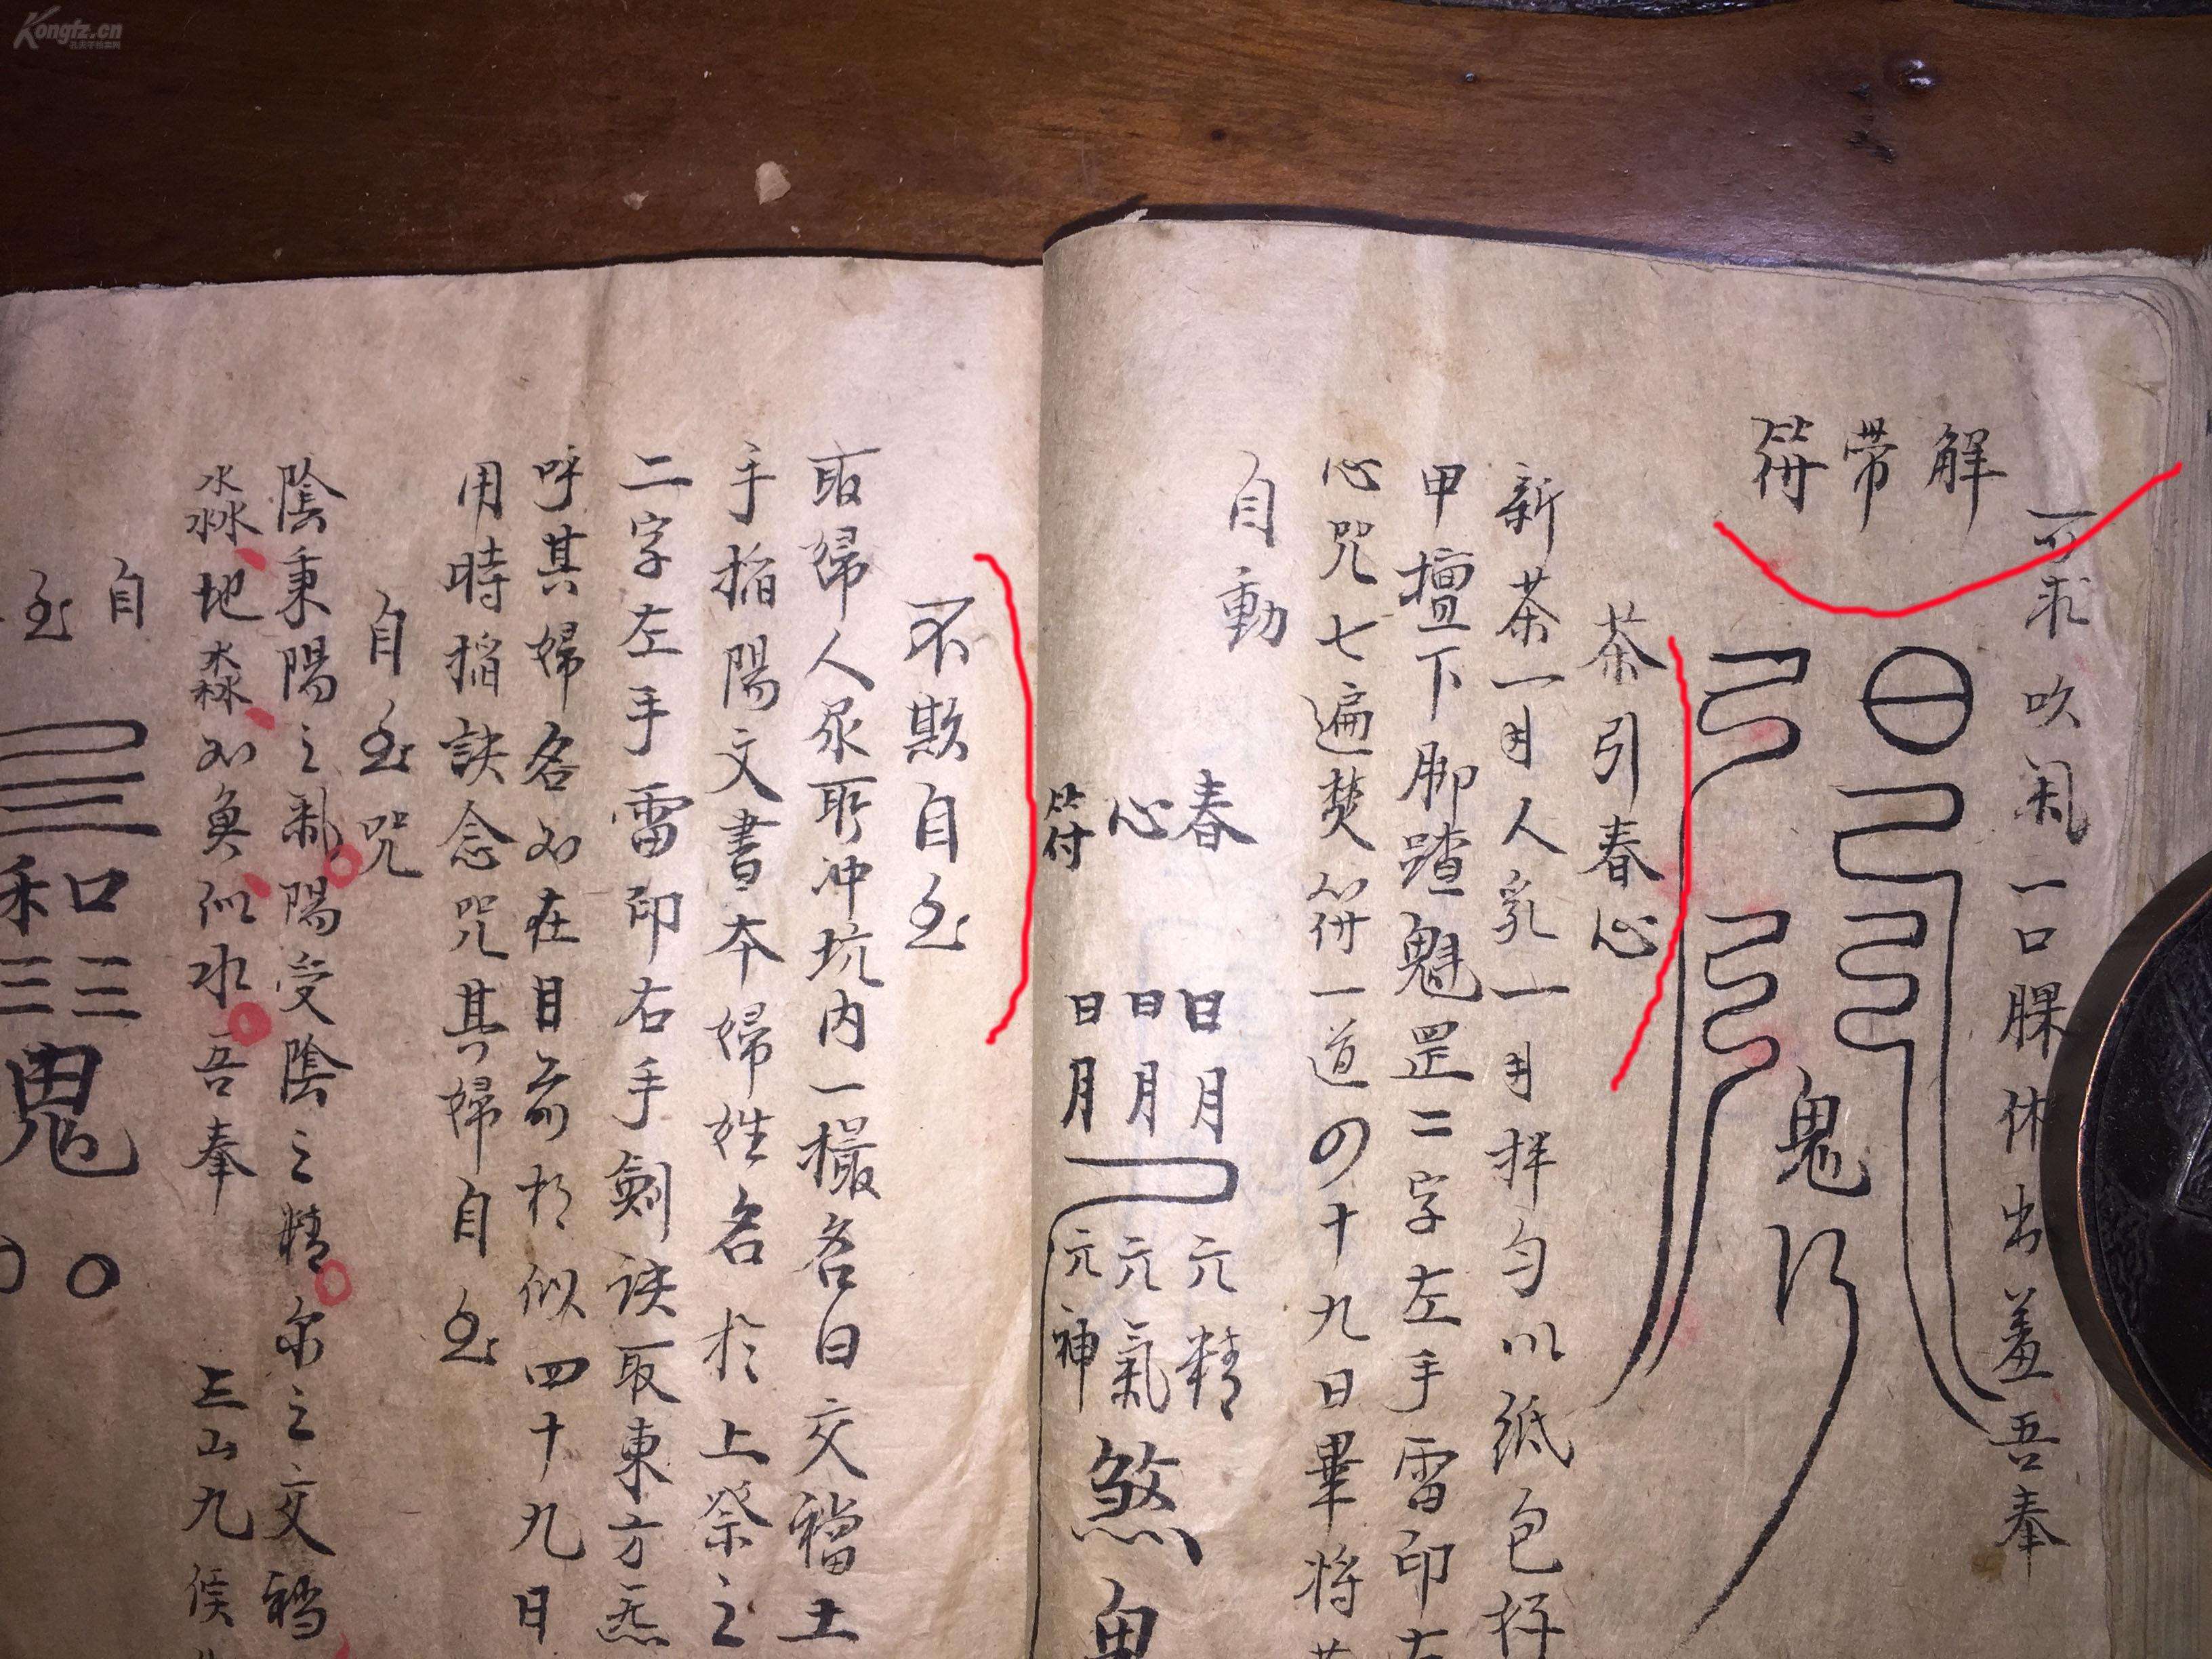 Kongfz.cn
孔夫子拍卖网
可求吹氣一口腂休出羞吾奉
解帶符
鬼
茶引春心
新茶一 人乳一 拌匀以紙包好
甲壇下脚踏魁罡二字左手雷印右
心咒七遍焚符一道四十九日畢將
自動
春心符
日月 日月 日月
元精 元氣 元神
煞
鬼
不欺自至
取婦人尿 冲坑内一撮名曰交 土
手 陽文書本婦姓名於上祭之
二字左手雷印右手劍訣取東方炁
呼其婦名如在目前 似四十九日
用時 訣念咒其婦自至
自至咒
陰秉陽之氣陽受陰之精 之交
淼地淼如魚似水吾奉
自至
和口
三三
鬼
三山九侯